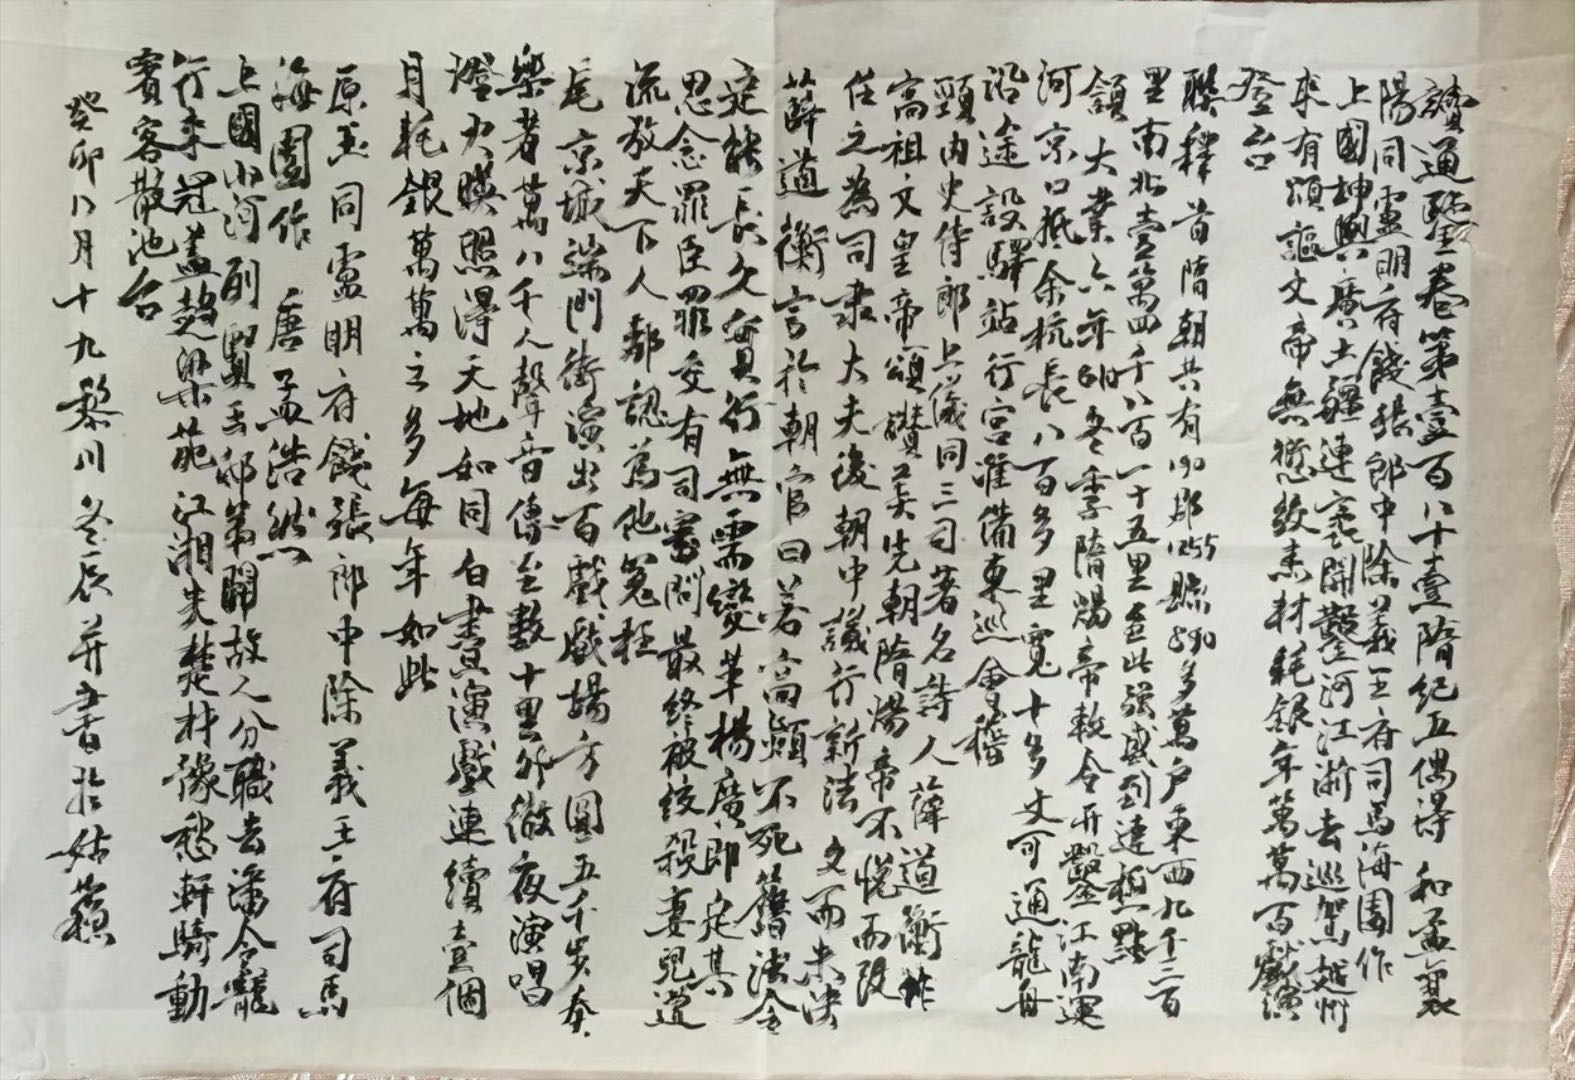 讀通鑒卷第壹百八十壹隋紀五偶得 和孟襄
陽同盧明府餞張郎中除義王府司馬海園作
上國坤輿廣土疆連寰開鑿河江浙去巡駕越州
來有頌謳文帝無愆紋素耗銀年萬萬百戲演
登台
聯釋 首隋朝共有190郡1255縣890多萬戶東西九千三百
里南北壹萬四千八百一十五里至此強盛到達極點
頷 大業六年610冬季隋煬帝敕令開鑿江南運
河京口抵余杭長八百多里寬十多丈可通龍舟
沿途設驛站行宮准備東巡會稽
頸內史侍郎上儀同三司著名詩人薛道衡作
高祖文皇帝頌讚美先朝隋煬帝不悅而設
任之為司隶大夫後朝中議行新法 久而未決
薛道衡言於朝官曰若高熲不死舊法令
定能長久貫行無需變革楊廣即定其
思念罪臣罪交有司審問最終被絞殺妻兒遣
流放天下人都認為他冤枉
尾 京城端門街演出百戲戲場方圓五千步奏
樂者萬八千人聲音傳至數十里外徹夜演唱
燈火暎照得天地如同白晝演戲連續壹個
月耗銀萬萬之多每年如此
原玉同盧明府餞張郎中除義王府司馬
海園作 唐 孟浩然
上國山河列賢王邸第開故人分職去潘令寵
行來冠蓋趨梁苑江湘失楚材豫愁軒騎動
賓客散池台
癸卯八月十九黎川冬辰并書於姑蘇